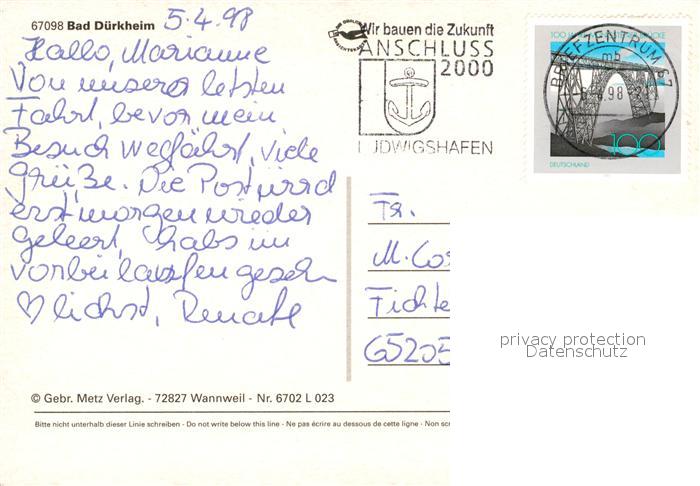 67098 Bad Dürkheim 5.4.98
Hallo, Marianne
Von unserer letzten
Fahrt, bevor mein
Besuch wegfährt, viele
Grüße. Die Post wird
erst morgen wieder
geleert, habs im
vorbeilaufen gesehn
♡lichst, Renate
Wir bauen die Zukunft
ANSCHLUSS
2000
LUDWIGSHAFEN
BRIEFZENTRUM 67
mb
100
DEUTSCHLAND
Fr.
M. Cos
Fichte
65205
privacy protection
Datenschutz
© Gebr. Metz Verlag. - 72827 Wannweil - Nr. 6702 L 023
Bitte nicht unterhalb dieser Linie schreiben - Do not write below this line - Ne pas écrire au dessous de cette ligne - Non scr